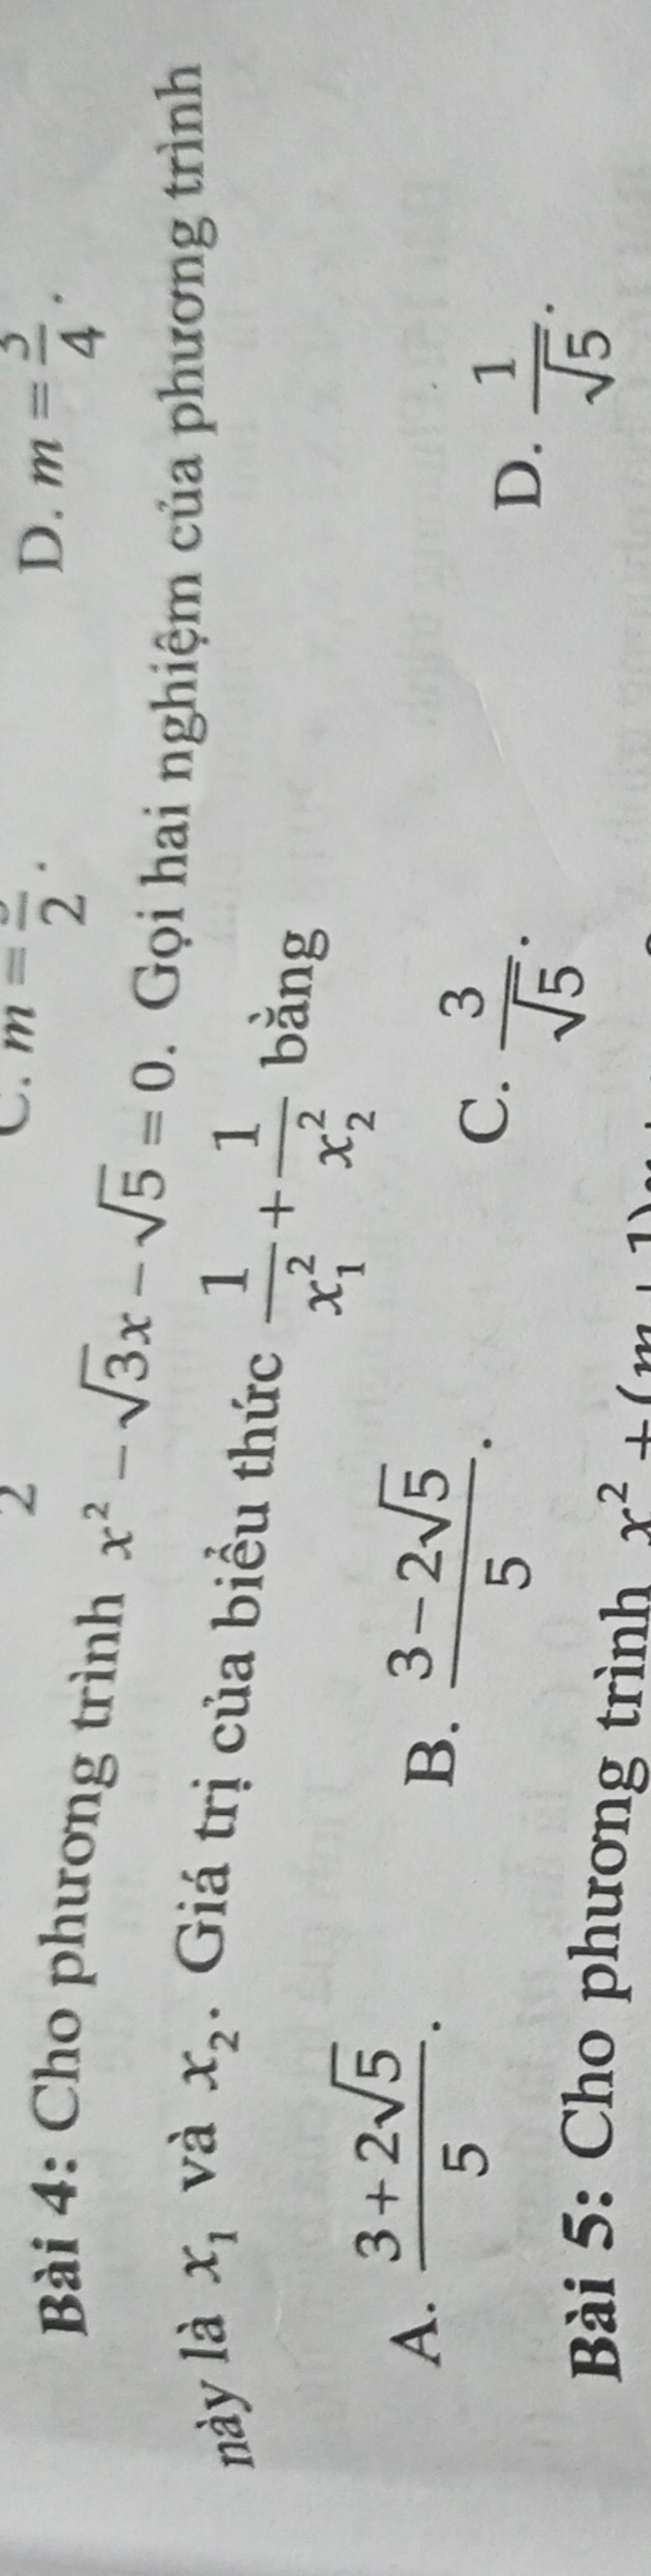 2
C. m = 2.
D. m = 3/4.
Bài 4: Cho phương trình x² − √3x − √5 = 0. Gọi hai nghiệm của phương trình
này là x₁ và x₂. Giá trị của biểu thức 1/x₁² + 1/x₂² bằng
A. (3 + 2√5)/5.
B. (3 − 2√5)/5.
C. 3/√5.
D. 1/√5.
Bài 5: Cho phương trình x² + (m